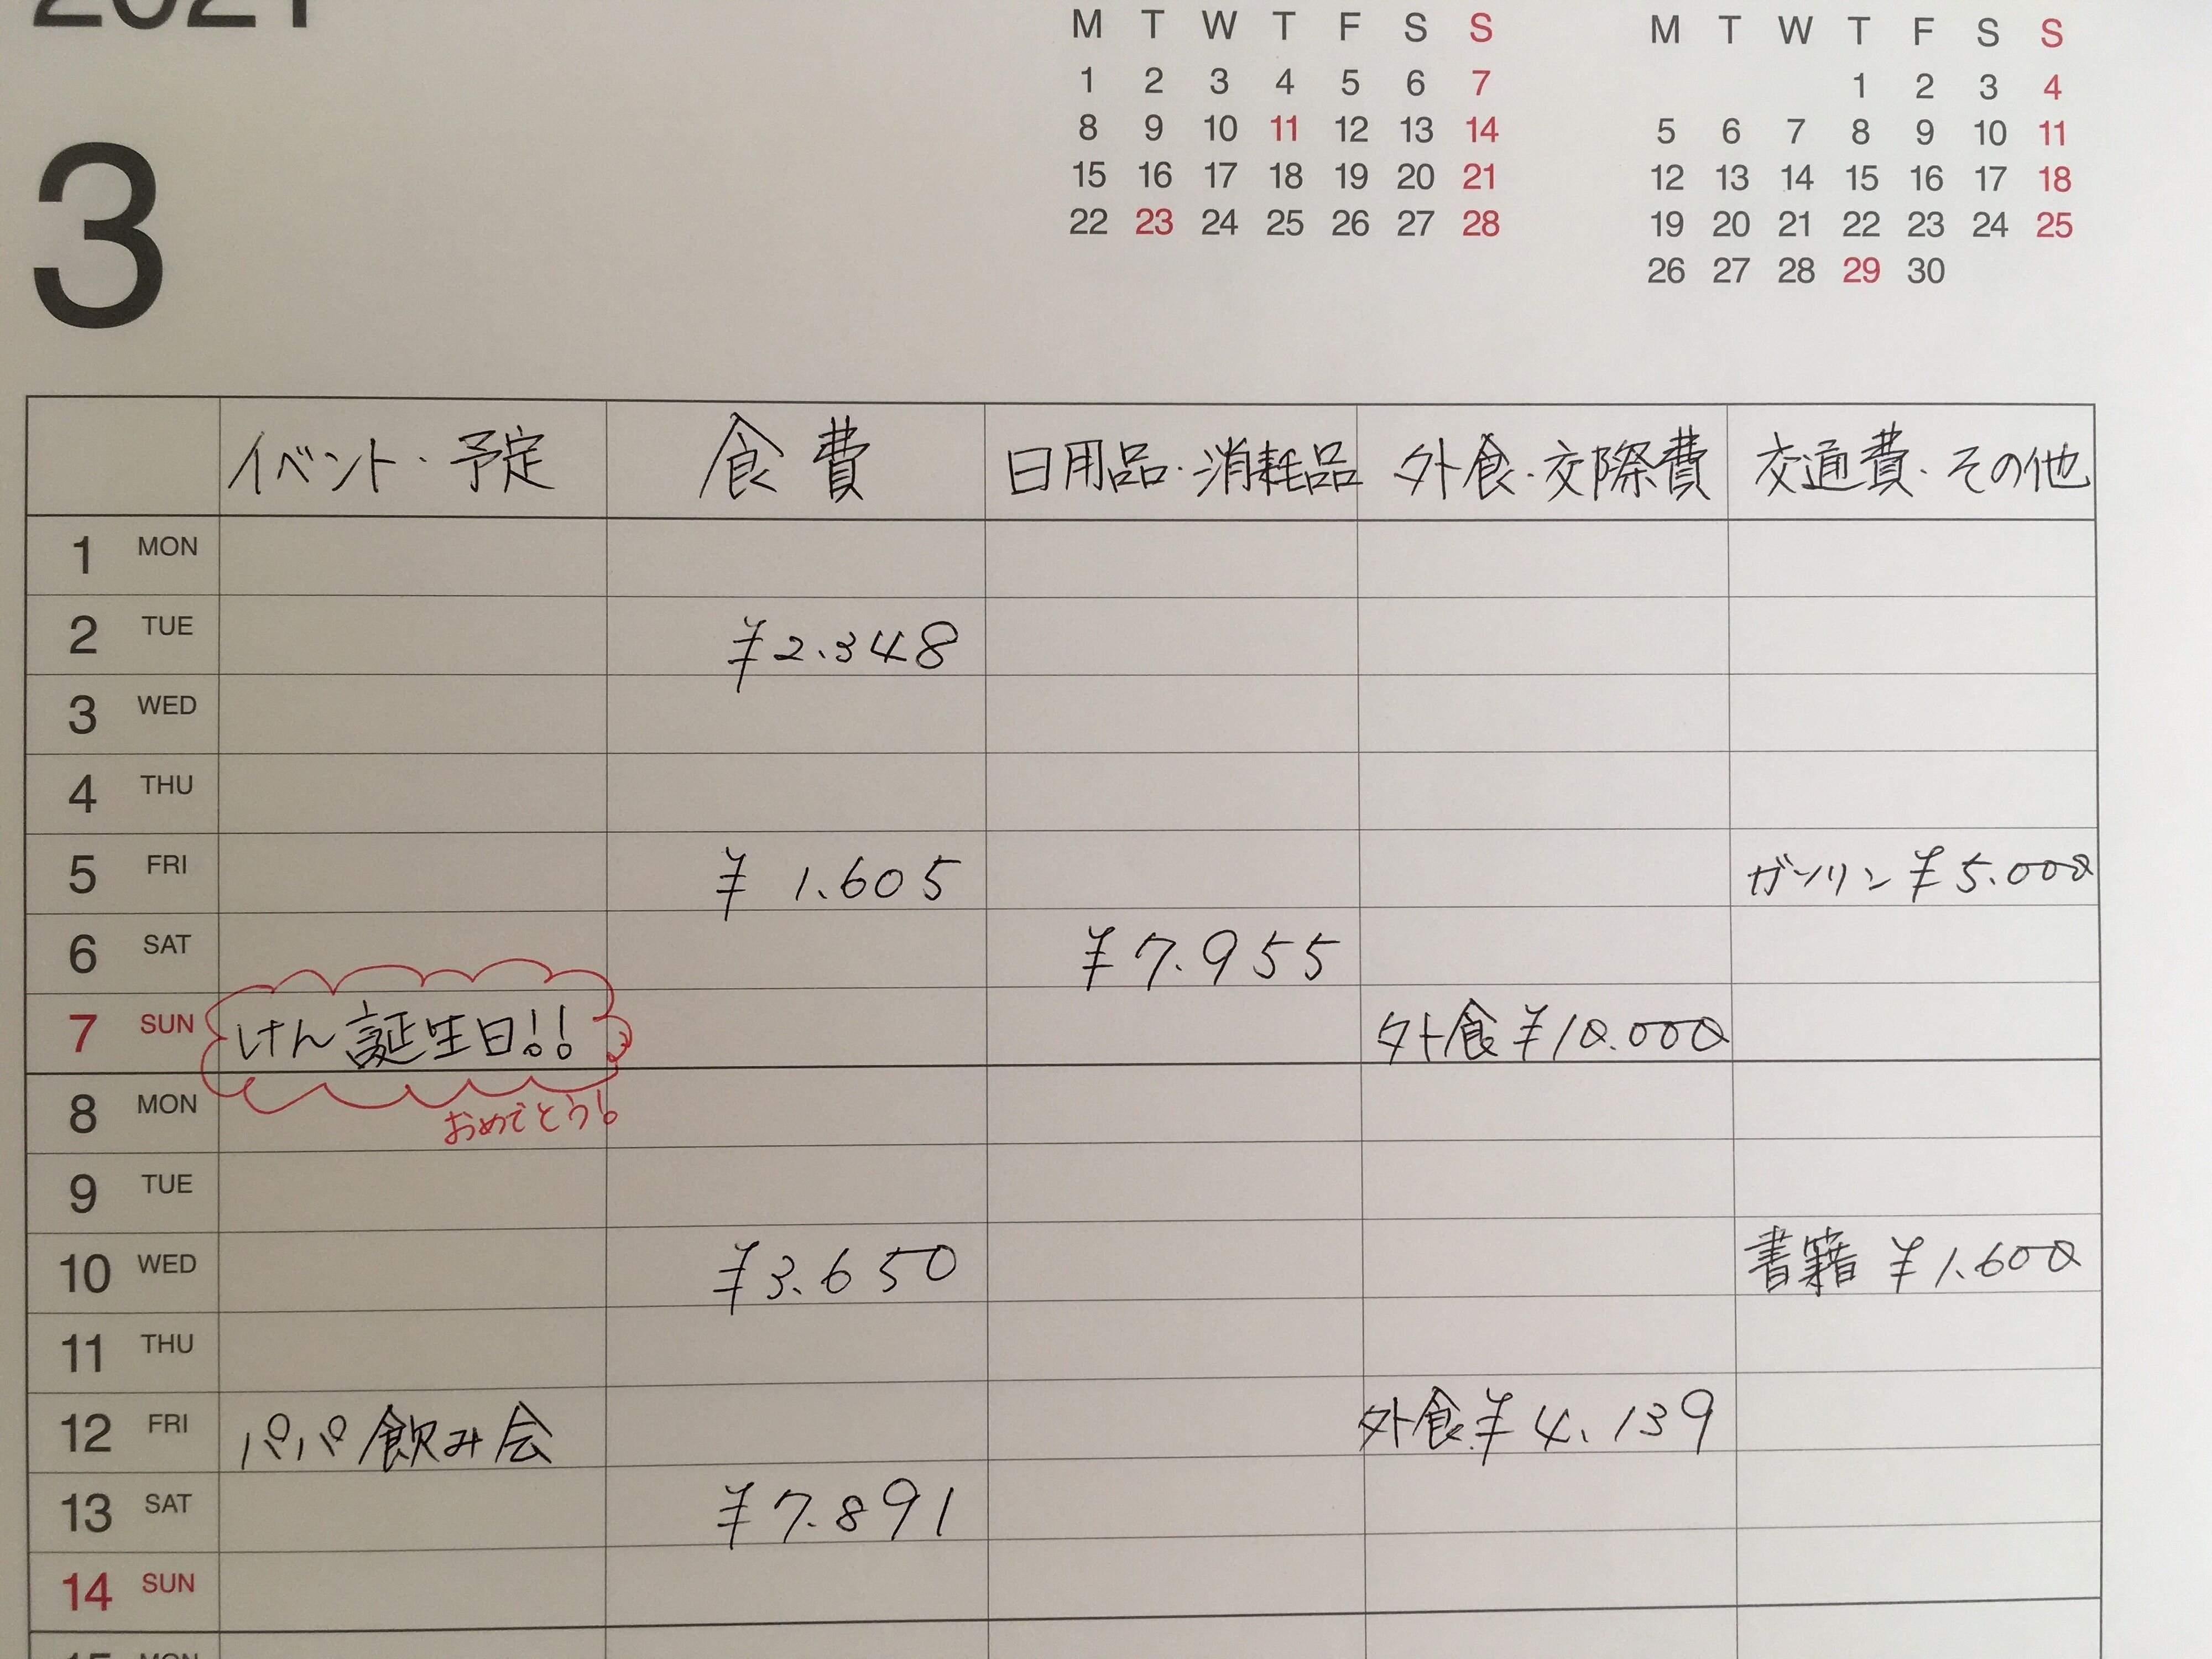 2021
3
M T W T F S S
1 2 3 4 5 6 7
8 9 10 11 12 13 14
15 16 17 18 19 20 21
22 23 24 25 26 27 28
M T W T F S S
1 2 3 4
5 6 7 8 9 10 11
12 13 14 15 16 17 18
19 20 21 22 23 24 25
26 27 28 29 30
イベント・予定 食費 日用品・消耗品 外食・交際費 交通費・その他
1 MON
2 TUE ¥2.348
3 WED
4 THU
5 FRI ¥1.605 ガソリン ¥5.000
6 SAT ¥7.955
7 SUN けん誕生日!! 外食 ¥10.000
8 MON おめでとう!
9 TUE
10 WED ¥3.650 書籍 ¥1.600
11 THU
12 FRI パパ飲み会 外食 ¥4.139
13 SAT ¥7.891
14 SUN
15 MON